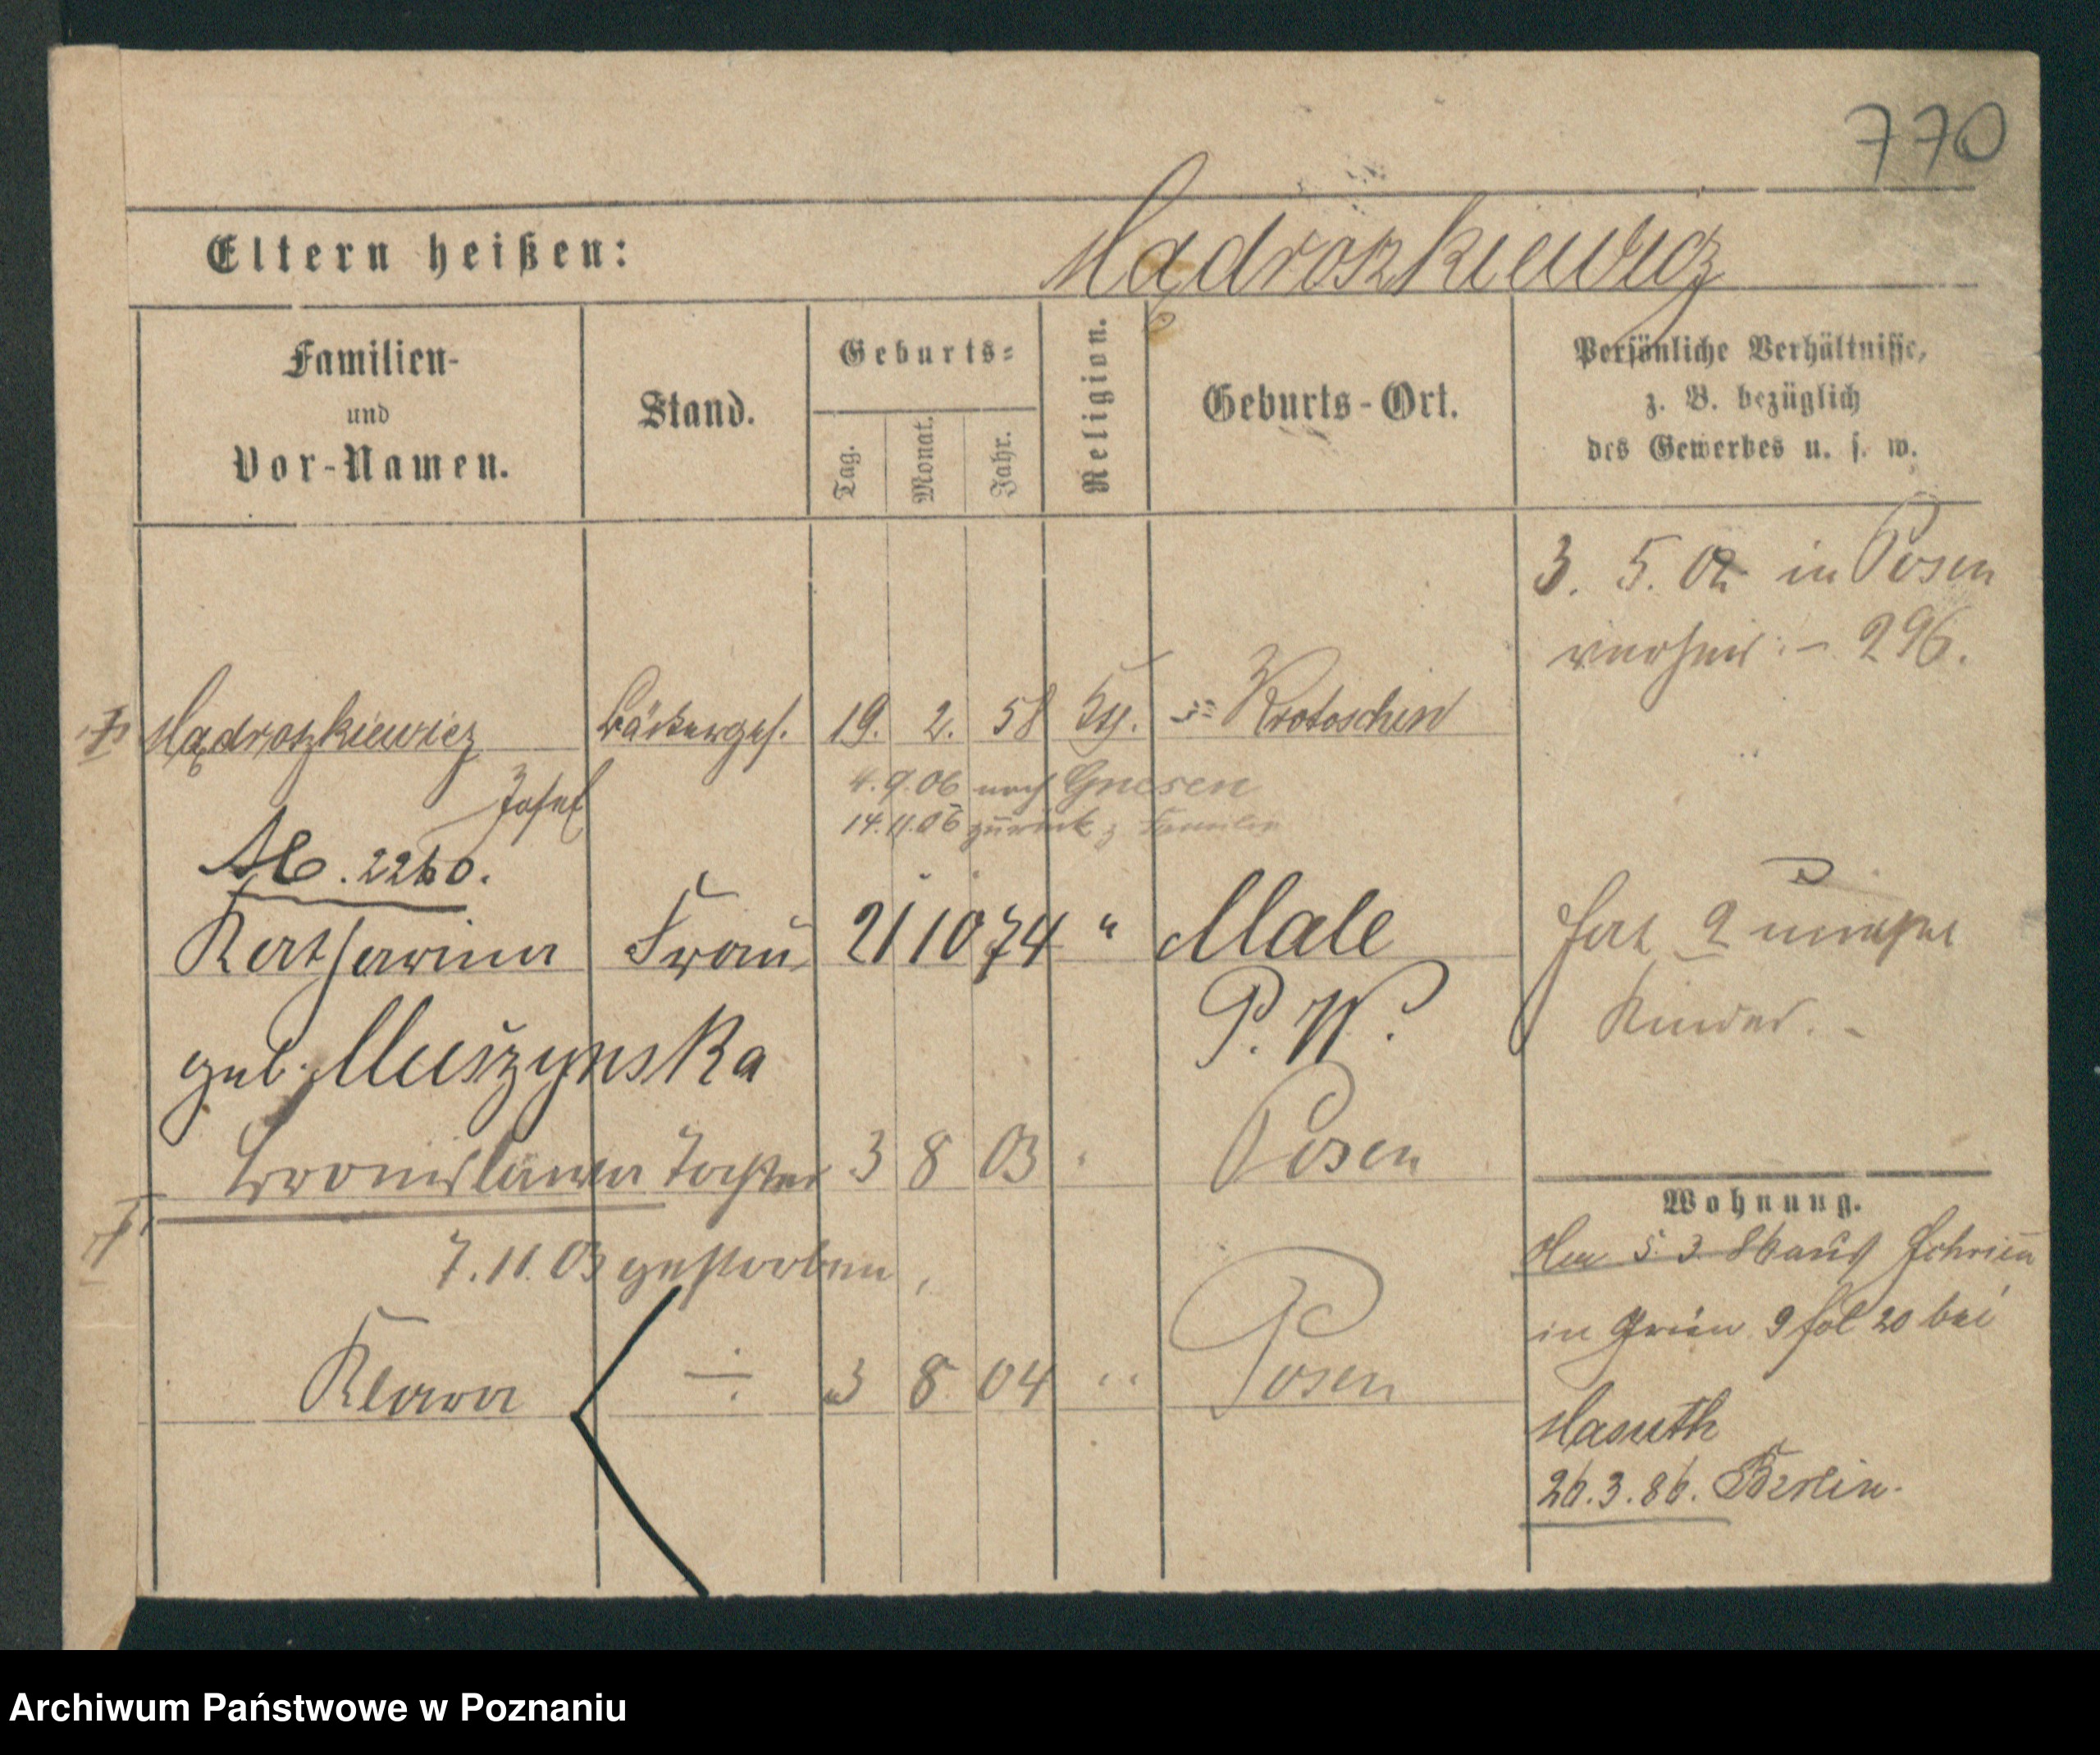 770
Eltern heißen:
Mądroszkiewicz
Familien-
und
Vor-Namen.
Stand.
Geburts-
Tag.
Monat.
Jahr.
Religion.
Geburts-Ort.
Persönliche Verhältnisse,
z. B. bezüglich
des Gewerbes u. s. w.
3. 5. 02 in Posen
verheir. – 296.
Mądroszkiewicz Bäckerges. 19. 2. 58 Krotoschin
Josef
4. 9. 06 nach Gnesen
14.11.06 zurück z Familie
Ab. 2260.
Katharina Frau 21 10 74 " Male
P. W.
geb. Muszynska
hat 2
Kinder. –
Bronislawa Tochter 3 8 03 " Posen
7. 11. 03 gestorben,
Klara 3 8 04 " Posen
Wohnung.
5. 3. 86 aus
in 9 fol 20 bei
Masuth
26. 3. 86. Berlin.
Archiwum Państwowe w Poznaniu